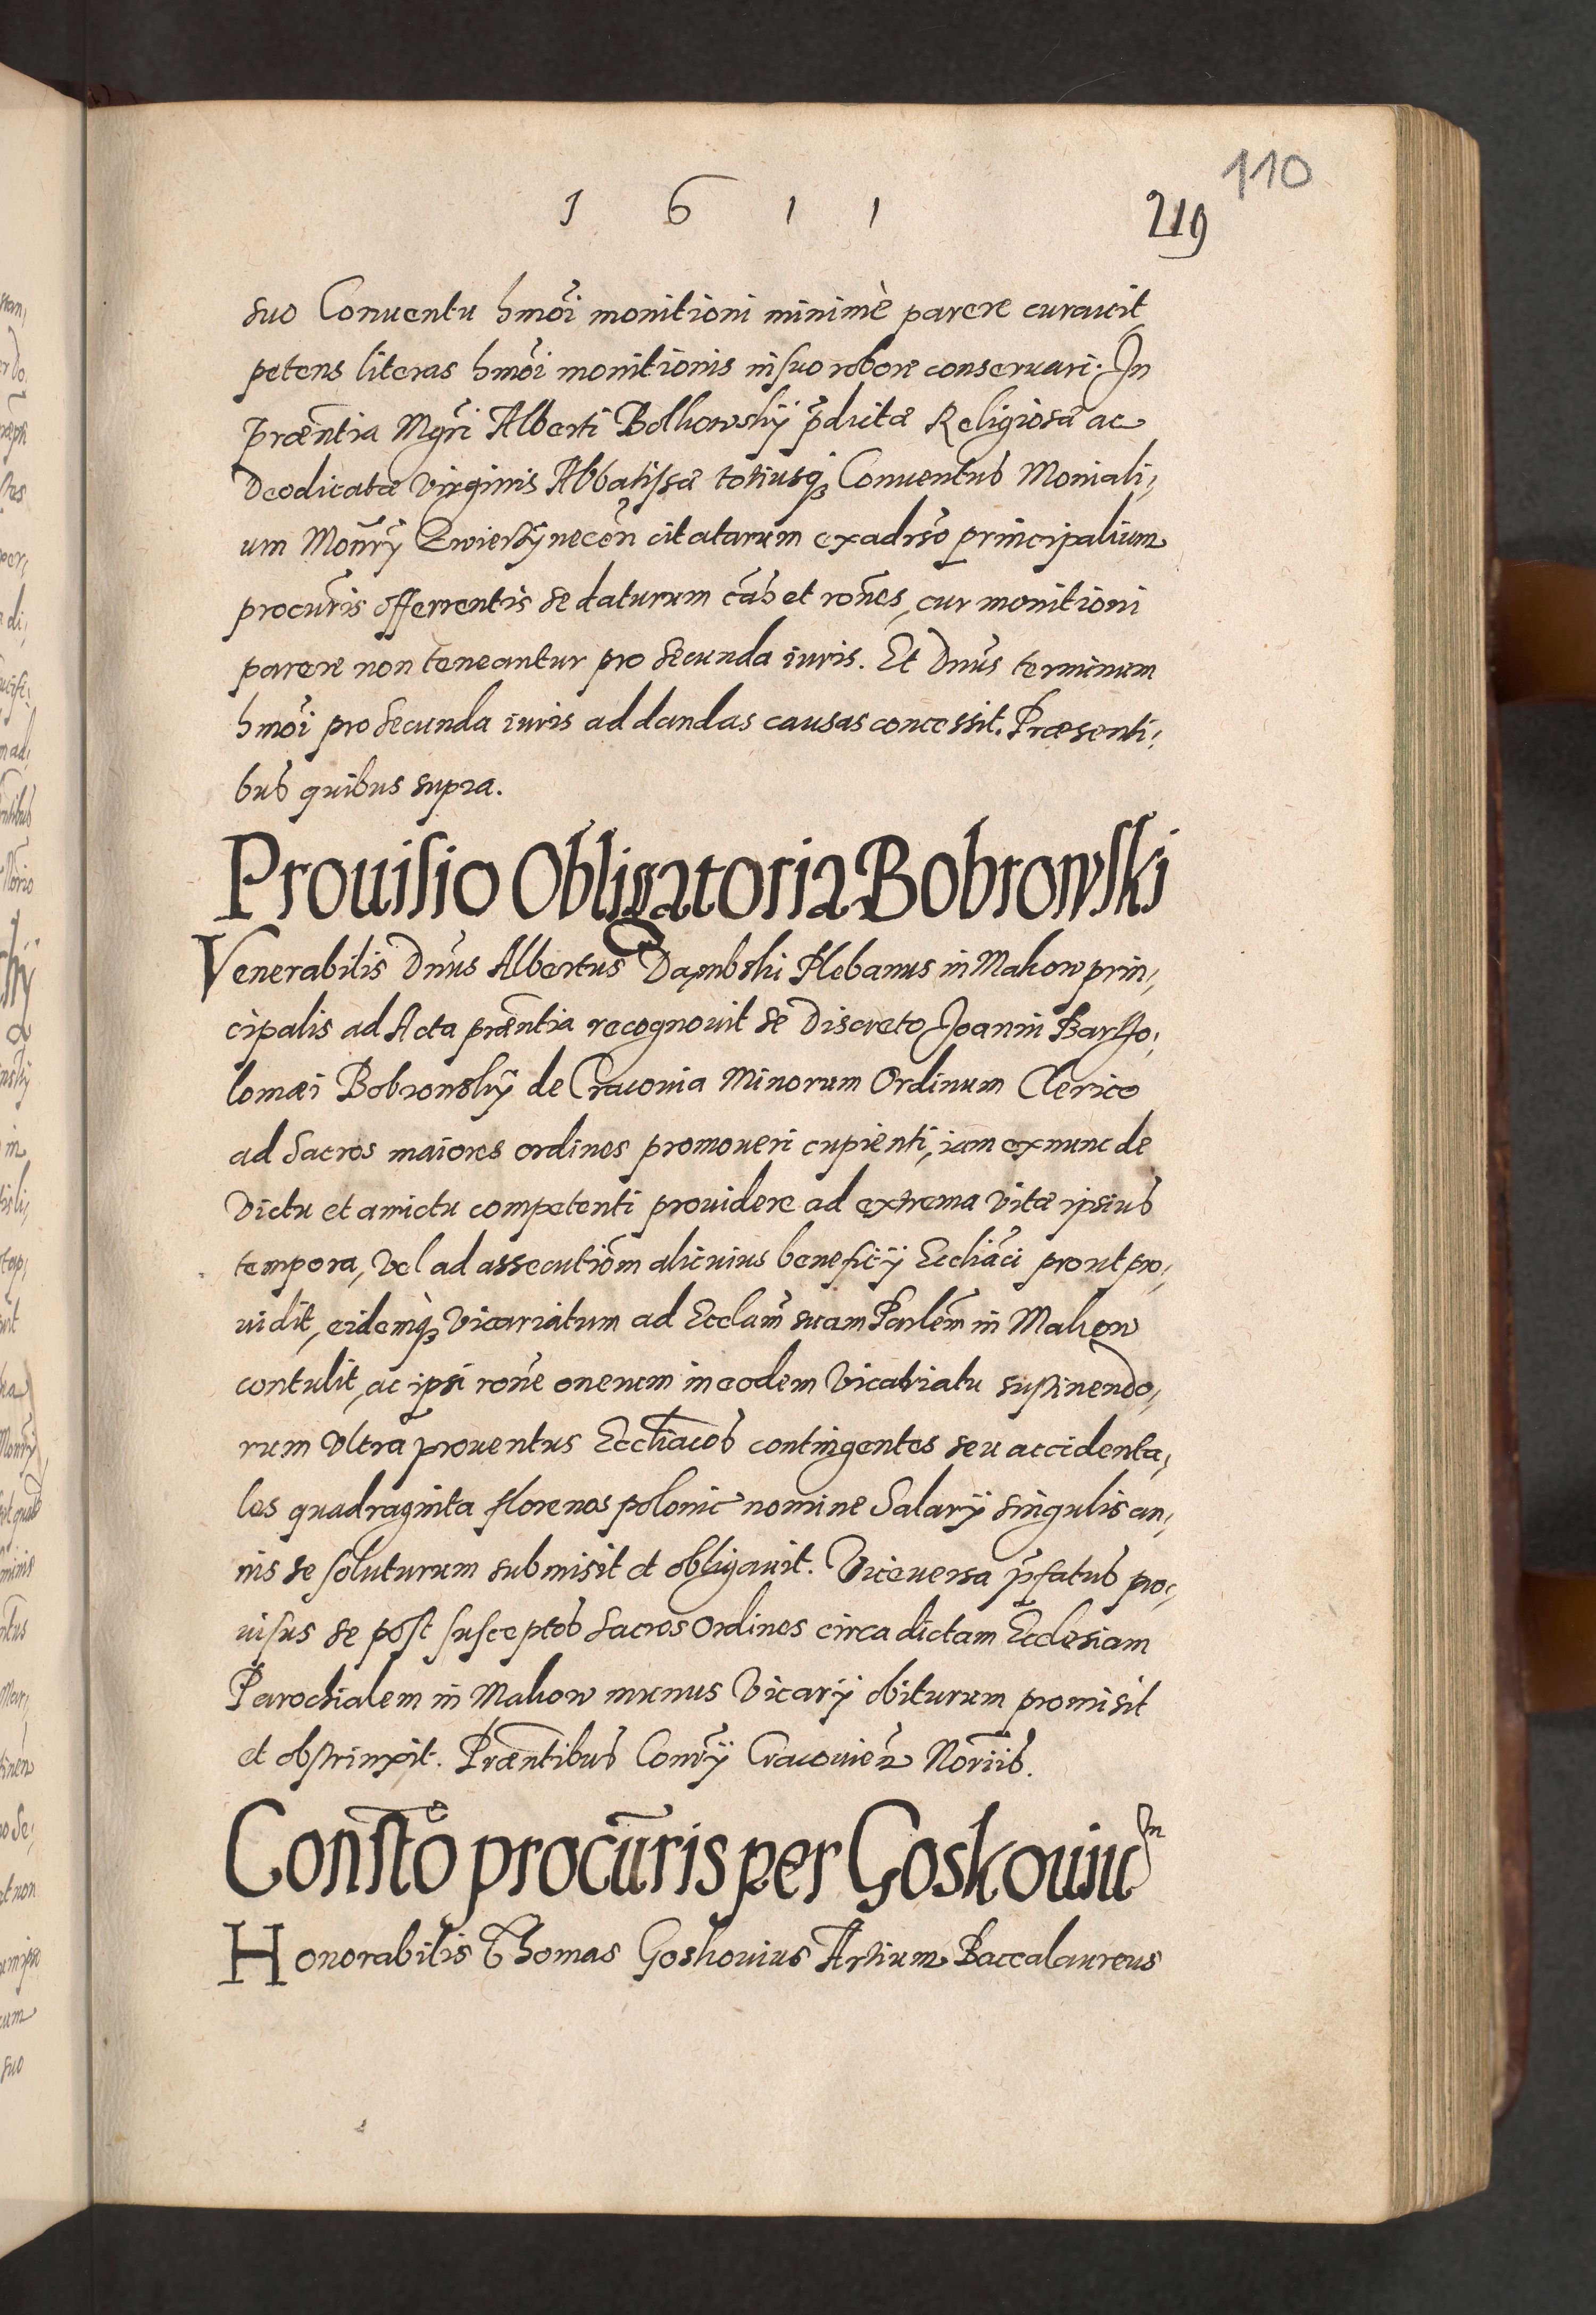 110
1611
219
suo Conuentu hmõi monitioni minimè parere curauit
petens literas hmõi monitionis in suo robore conseruari. In
præntia Mgri Alberti Bolkowskÿ pdictæ Religiosæ ac
Deodicatæ Virginis Abbatissæ totiusq3 Conuentus Moniali,
um Monrÿ Zwierzÿnecen citatarum ex aduerso principalium
procuris offerrentis se daturum cãs et rones, cur monitioni
parere non teneantur pro secunda iuris. Et Dnus terminum
hmõi pro secunda iuris ad dandas causas concessit. Præsenti,
bus quibus supra.
Prouisio Obligatoria Bobrowski
Venerabilis Dnus Albertus Dąmbski Plebanus in Makow prin,
cipalis ad Acta præntia recognouit se Discreto Joanni Bartho,
lomæi Bobrowskÿ de Cracouia Minorum Ordinum Clerico
ad Sacros maiores ordines promoueri cupienti, iam ex nunc de
Victu et amictu competenti prouidere ad extrema vitæ ipsius
tempora, Vel ad assecutiom alicuius beneficÿ Eccliãci prout pro,
uidit, eidemq3 Vicariatum ad Ecclam suam Parlem in Makow
contulit, ac ipsi rone onerum in eodem Vicariatu sustinendo,
rum Vltra prouentus Eccliacos contingentes seu accidenta,
les quadraginta florenos polonic nomine Salarÿ singulis an,
nis se soluturum submisit et obligauit. Viceuersa pfatus pro,
uisus se post susceptos Sacros Ordines circa dictam Ecclesiam
Parochialem in Makow munus Vicarÿ obiturum promisit
et obstrinxit. Præntibus Conrÿ Cracouien Norÿs.
Constõ procuris per Goskouiu
m
Honorabilis Thomas Goskouius Artium Baccalaureus